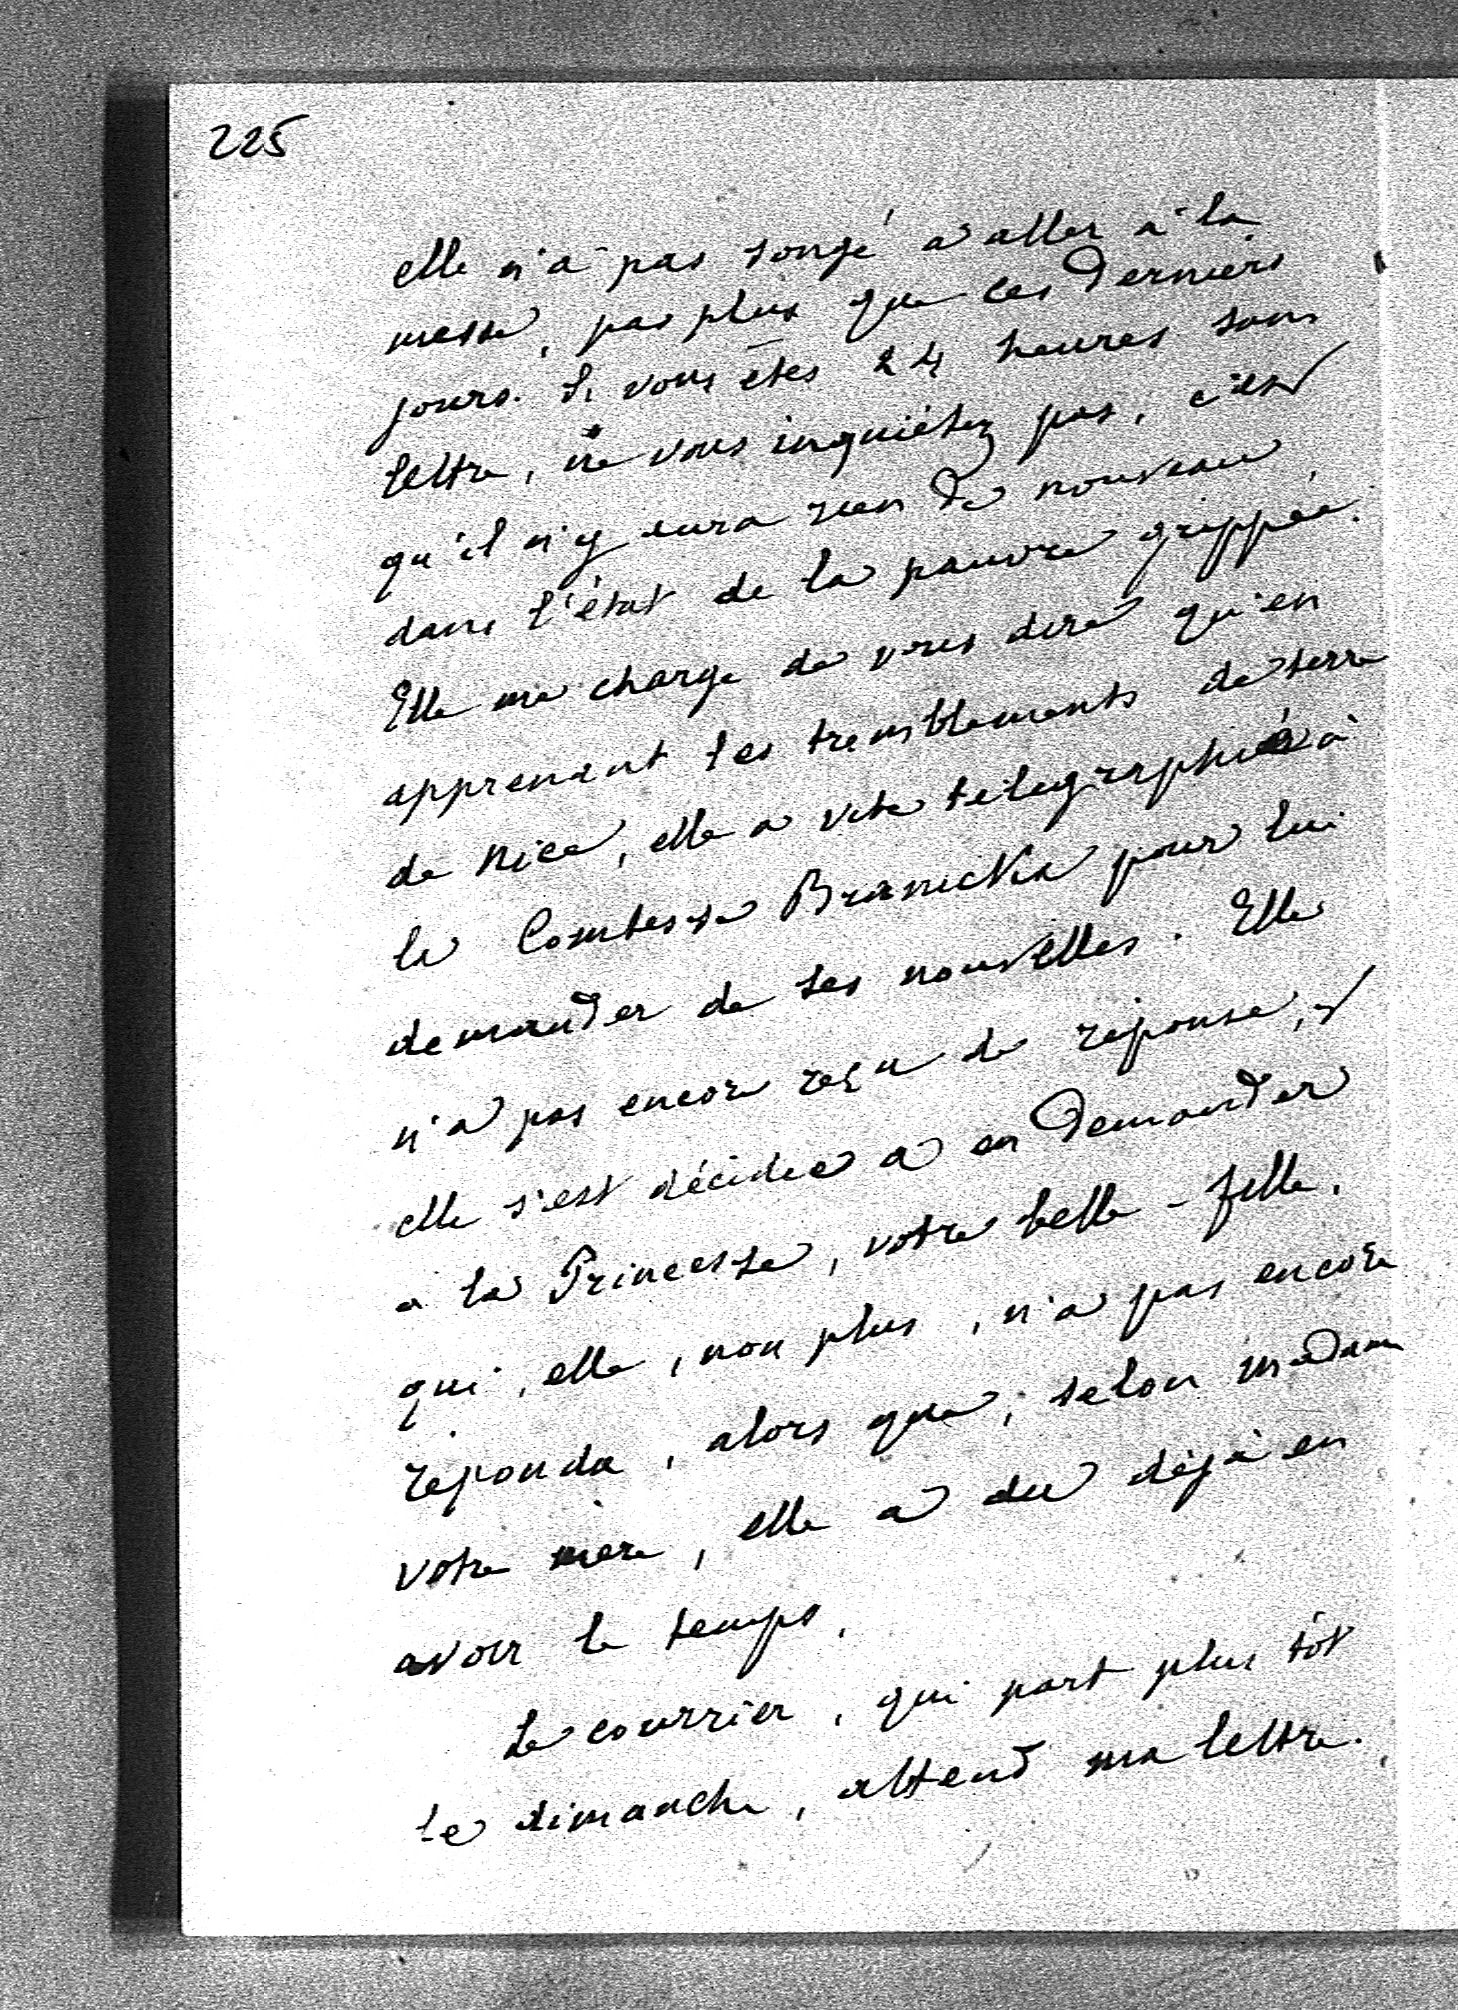 225
elle n'a pas songé à aller à la
messe, pas plus que ces derniers
jours. Si vous êtes 24 heures sans
lettre, ne vous inquiétez pas, c'est
qu'il n'y aura rien de nouveau
dans l'état de la pauvre grippée.
Elle me charge de vous dire qu'en
apprenant les tremblements de terre
de Nice, elle a vite télégraphié à
la Comtesse Branicka pour lui
demander de ses nouvelles. Elle
n'a pas encore reçu de réponse, et
elle s'est décidée à en demander
à la Princesse, votre belle-fille,
qui, elle, non plus, n'a pas encore
répondu, alors que, selon madame
votre mère, elle a dû déjà en
avoir le temps.
Le courrier, qui part plus tôt
le dimanche, attend ma lettre.